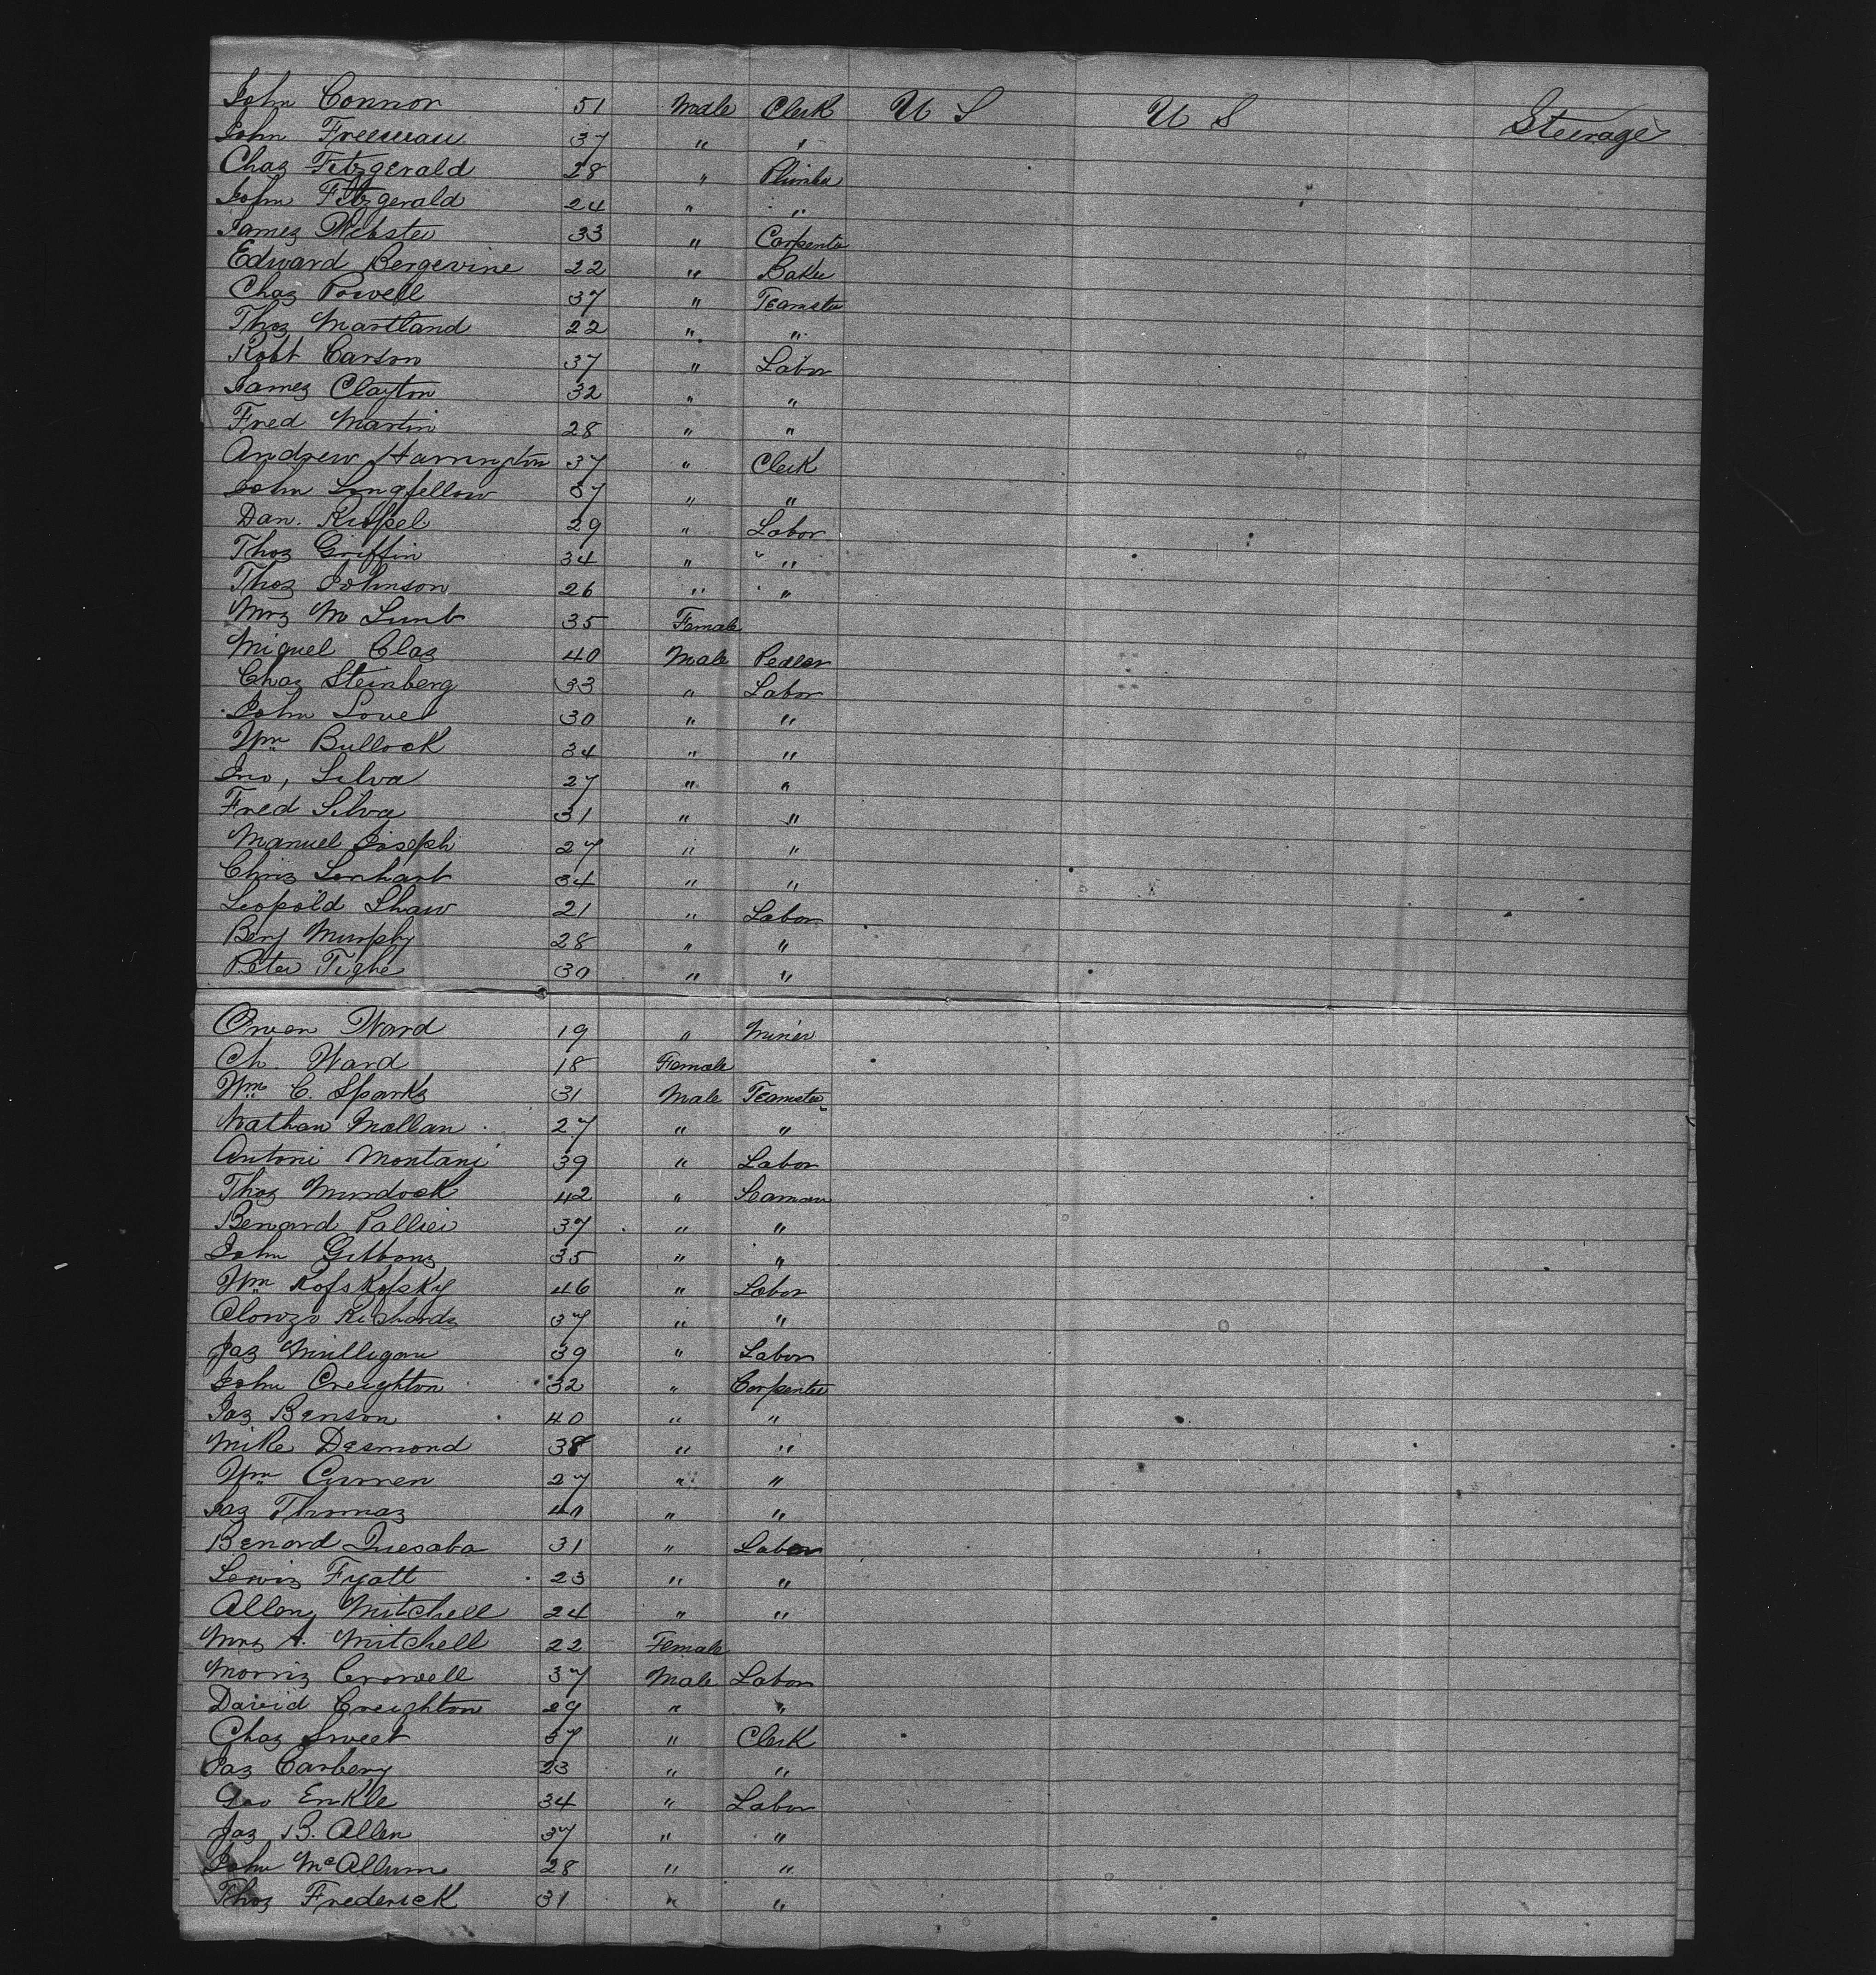 John Connor 51 Male Clerk U S U S Steerage
John Freeman 37 " "
Chas Fitzgerald 28 " Plumber
John Fitzgerald 24 " "
James Webster 33 " Carpenter
Edward Bergevine 22 " Baker
Chas Powell 37 " Teamster
Thos Martland 22 " "
Robt Carson 37 " Labor
James Clayton 32 " "
Fred Martin 28 " "
Andrew Harrington 37 " Clerk
John Longfellow 37 " "
Dan. 29 " Labor
Thos Griffin 34 " "
Thos Johnson 26 " "
Mrs M Lunt 35 Female
Miguel Clas 40 Male Pedler
Chas Steinberg 33 " Labor
John Lovet 30 " "
Wm Bullock 34 " "
Jno, Silva 27 " "
Fred Silva 31 " "
Manuel Joseph 27 " "
Chris Lenhart 34 " "
Leopold Shaw 21 " Labor
Benj Murphy 28 " "
Peter Tighe 30 " "
Owen Ward 19 " Miner
Ch. Ward 18 Female
Wm C. Sparks 31 Male Teamster
Nathan Mallan 27 " "
Antoni Montani 39 " Labor
Thos Murdock 42 " Seaman
Benard Pallier 37 " "
John Gibbons 35 " "
Wm Kofskofsky 46 " Labor
Alonzo Richards 37 " "
Jas Milligan 39 " Labor
John Creighton 32 " Carpenter
Jas Benson 40 " "
Mike Desmond 38 " "
Wm Curren 27 " "
Jas Thomas 40 " "
Benard Quesaba 31 " Labor
Lewis Fyatt 23 " "
Allen Mitchell 24 " "
Mrs A. Mitchell 22 Female
Morris Crowell 37 Male Labor
David Creighton 29 " "
Chas Sweet 37 " Clerk
Jas Carbery 23 " "
Geo Enkle 34 " Labor
Jas B. Allen 37 " "
John McAllum 28 " "
Thos Frederick 31 " "